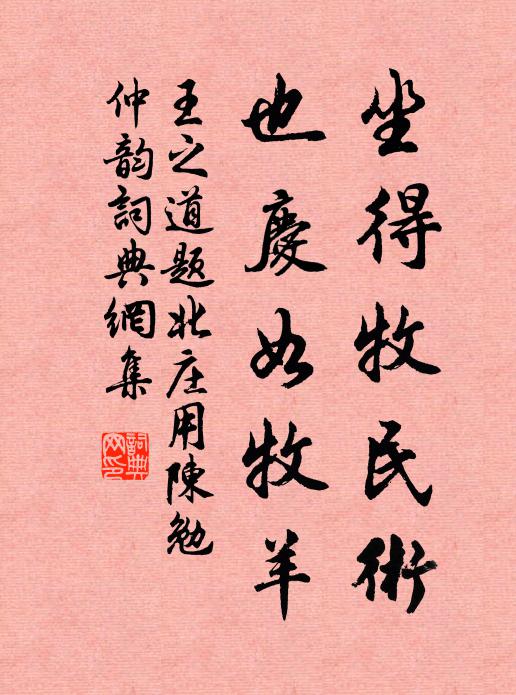 坐得牧民術
也慶如牧羊
王之道題北庄用陳勉
仲韵詞典網集
詞典
网印